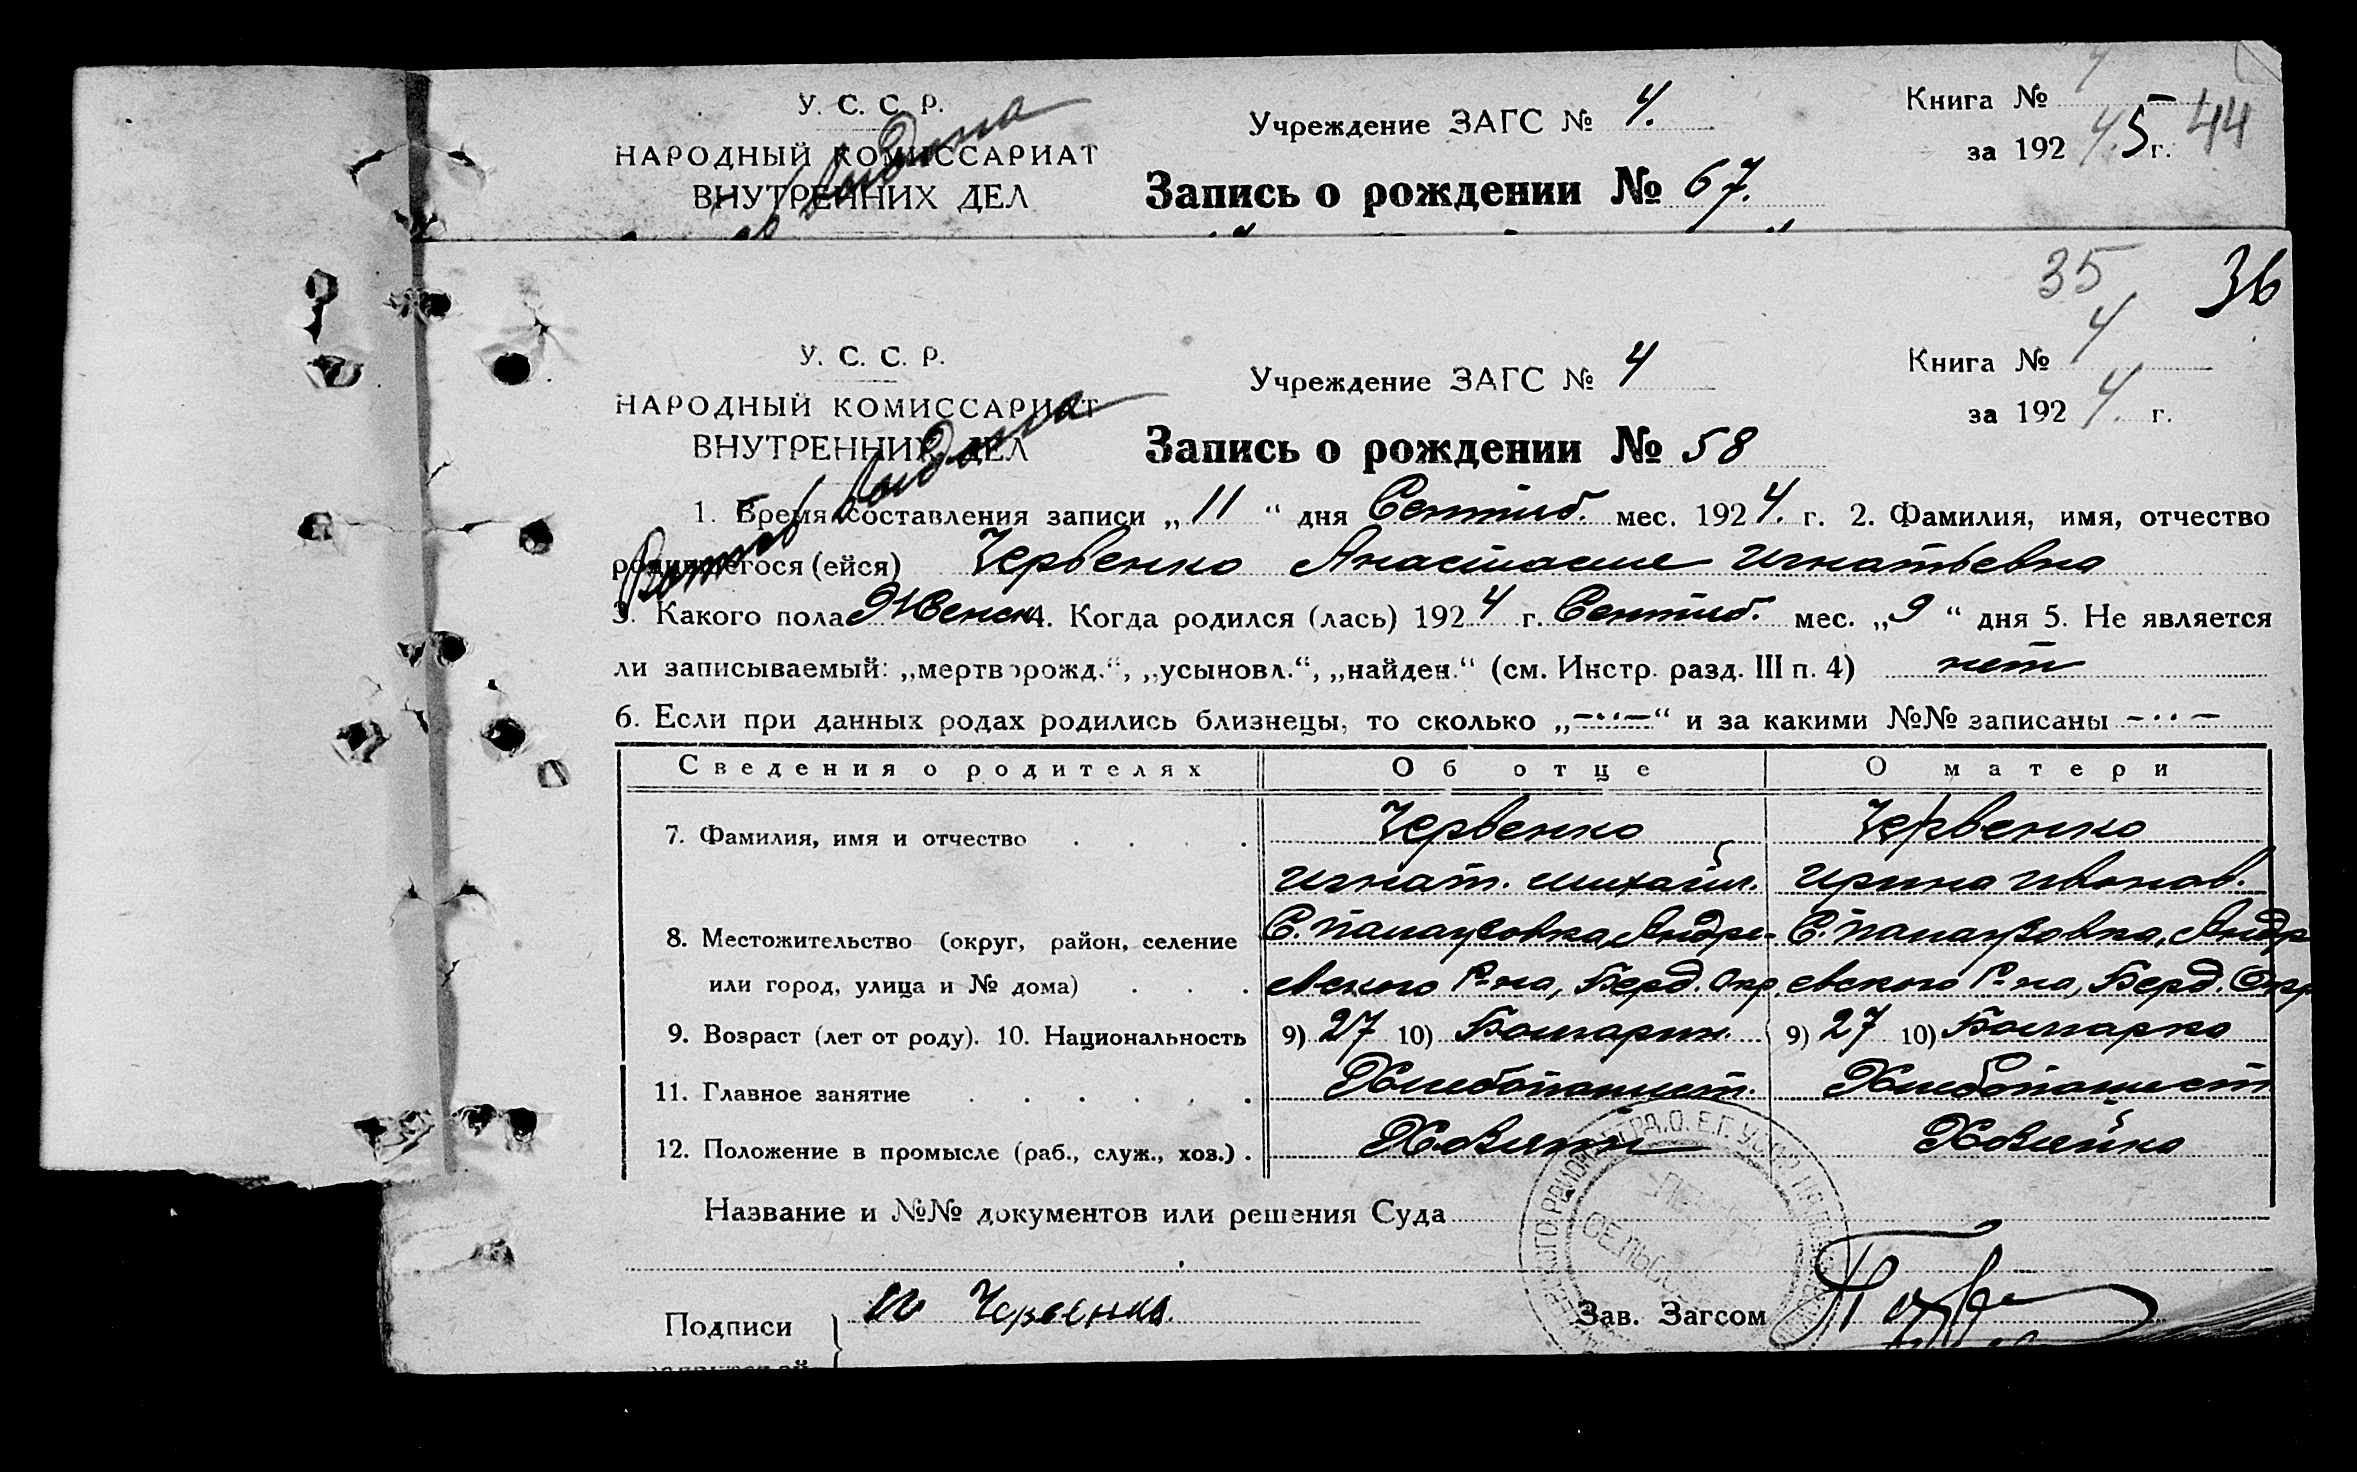 У. С. С. Р.
НАРОДНЫЙ КОМИССАРИАТ
ВНУТРЕННИХ ДЕЛ
выдана
Учреждение ЗАГС № 4.
Запись о рождении № 67.
Книга № 4
за 192 4. 5 г. 44
35 36
У. С. С. Р.
НАРОДНЫЙ КОМИССАРИАТ
ВНУТРЕННИХ ДЕЛ
выдана
Учреждение ЗАГС № 4
Запись о рождении № 58
Книга № 4
за 192 4. г.
1. Время составления записи „ 11 “ дня Сентяб. мес. 192 4. г. 2. Фамилия, имя, отчество
родившегося (ейся) Червенко Анастасие Игнатьевна
3. Какого пола Женск 4. Когда родился (лась) 192 4 г. Сентяб. мес. „ 9 “ дня 5. Не является
ли записываемый: „мертворожд.“, „усыновл.“, „найден.“ (см. Инстр. разд. III п. 4) нет
6. Если при данных родах родились близнецы, то сколько „-··-“ и за какими №№ записаны -··-
Сведения о родителях Об отце О матери
7. Фамилия, имя и отчество . . . . Червенко Червенко
Игнат. Михайл. Ирина Иванов.
8. Местожительство (округ, район, селение С. Палаузовка, Андре- С. Палаузовка, Андр
или город, улица и № дома) . . . евского Р-на, Берд. Окр. евского Р-на, Берд. Окр
9. Возраст (лет от роду). 10. Национальность 9) 27 10) Болгарин. 9) 27 10) Болгарка
11. Главное занятие . . . . . . Хлебопашест. Хлебопашест
12. Положение в промысле (раб., служ., хоз.) . Хозяин Хозяйка
Название и №№ документов или решения Суда
Подписи И Червенко.
Зав. Загсом
СЕЛЬСО